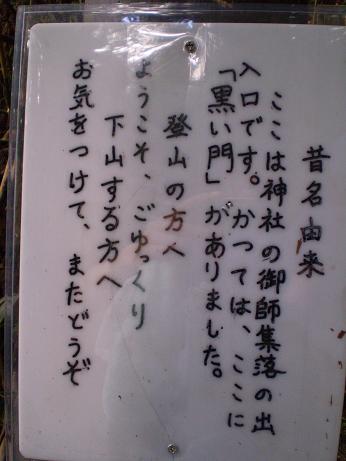 昔名由来
ここは神社の御師集落の出
入口です。かつては、ここに
「黒い門」がありました。
登山の方へ
ようこそ、ごゆっくり
下山する方へ
お気をつけて、またどうぞ